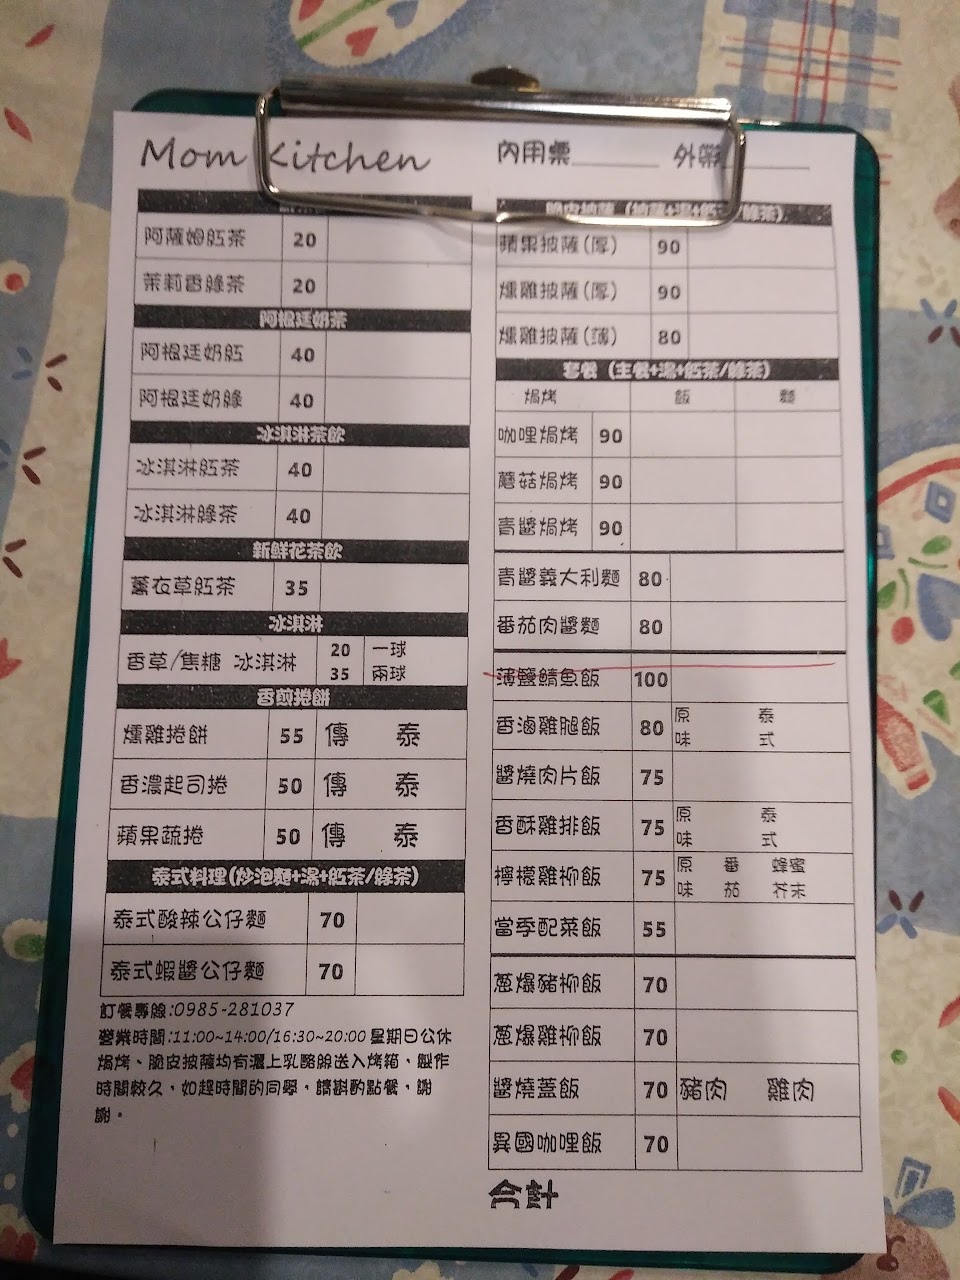 Mom Kitchen
內用桌 外帶
阿薩姆紅茶 20
茉莉香綠茶 20
阿根廷奶茶
阿根廷奶紅 40
阿根廷奶綠 40
冰淇淋茶飲
冰淇淋紅茶 40
冰淇淋綠茶 40
新鮮花茶飲
薰衣草紅茶 35
冰淇淋
香草/焦糖 冰淇淋 20 一球
35 兩球
香煎捲餅
燻雞捲餅 55 傳 泰
香濃起司捲 50 傳 泰
蘋果蔬捲 50 傳 泰
泰式料理(炒泡麵+湯+紅茶/綠茶)
泰式酸辣公仔麵 70
泰式蝦醬公仔麵 70
訂餐專線:0985-281037
營業時間:11:00~14:00/16:30~20:00 星期日公休
焗烤、脆皮披薩均有灑上乳酪絲送入烤箱，製作
時間較久，如趕時間的同學，請斟酌點餐，謝
謝。
脆皮披薩 (披薩+湯+紅茶/綠茶)
蘋果披薩(厚) 90
燻雞披薩(厚) 90
燻雞披薩(薄) 80
套餐 (主餐+湯+紅茶/綠茶)
焗烤 飯 麵
咖哩焗烤 90
蘑菇焗烤 90
青醬焗烤 90
青醬義大利麵 80
番茄肉醬麵 80
薄鹽鯖魚飯 100
香滷雞腿飯 80 原味 泰式
醬燒肉片飯 75
香酥雞排飯 75 原味 泰式
檸檬雞柳飯 75 原味 番茄 蜂蜜芥末
當季配菜飯 55
蔥爆豬柳飯 70
蔥爆雞柳飯 70
醬燒蓋飯 70 豬肉 雞肉
異國咖哩飯 70
合計